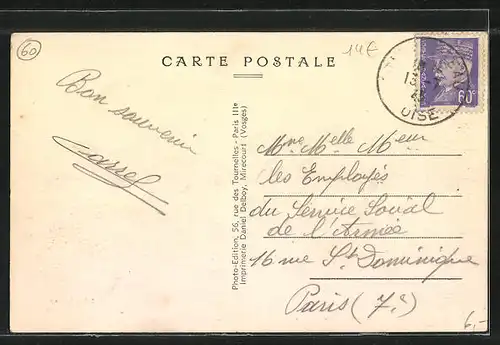 60
14€
CARTE POSTALE
60c
OISE
Bon souvenir
Photo-Edition, 56, rue des Tournelles - Paris IIIe
Imprimerie Daniel Delboy, Mirecourt (Vosges)
Mme Melle Meur
les Employés
du Service Social
de l'Armée
16 rue St Dominique
Paris (7e)
6,-